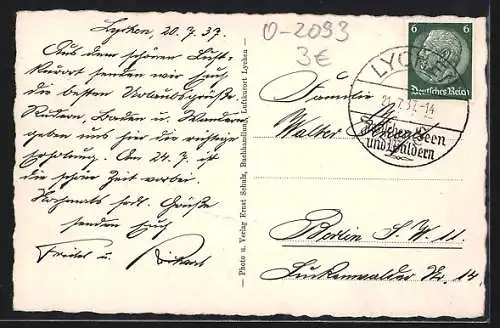 Lychen, 20.7.37.
Aus dem schönen Luft-
kurort senden wir Euch
die besten Urlaubsgrüße.
Rudern, Baden u. Wandern
geben uns hier die richtige
Erholung. Am 24.7. ist
die schöne Zeit vorbei.
Nochmals herzl. Grüße
senden Euch
Friedel u.
— Photo u. Verlag Ernst Schulz, Buchhandlung, Luftkurort Lychen —
O-2093
3€
6 6
Deutsches Reich
LYCHEN
21.7.37.-14
Seen
und Wäldern
Familie
Walter
Berlin S.W. 11.
Luckenwalder Str. 14